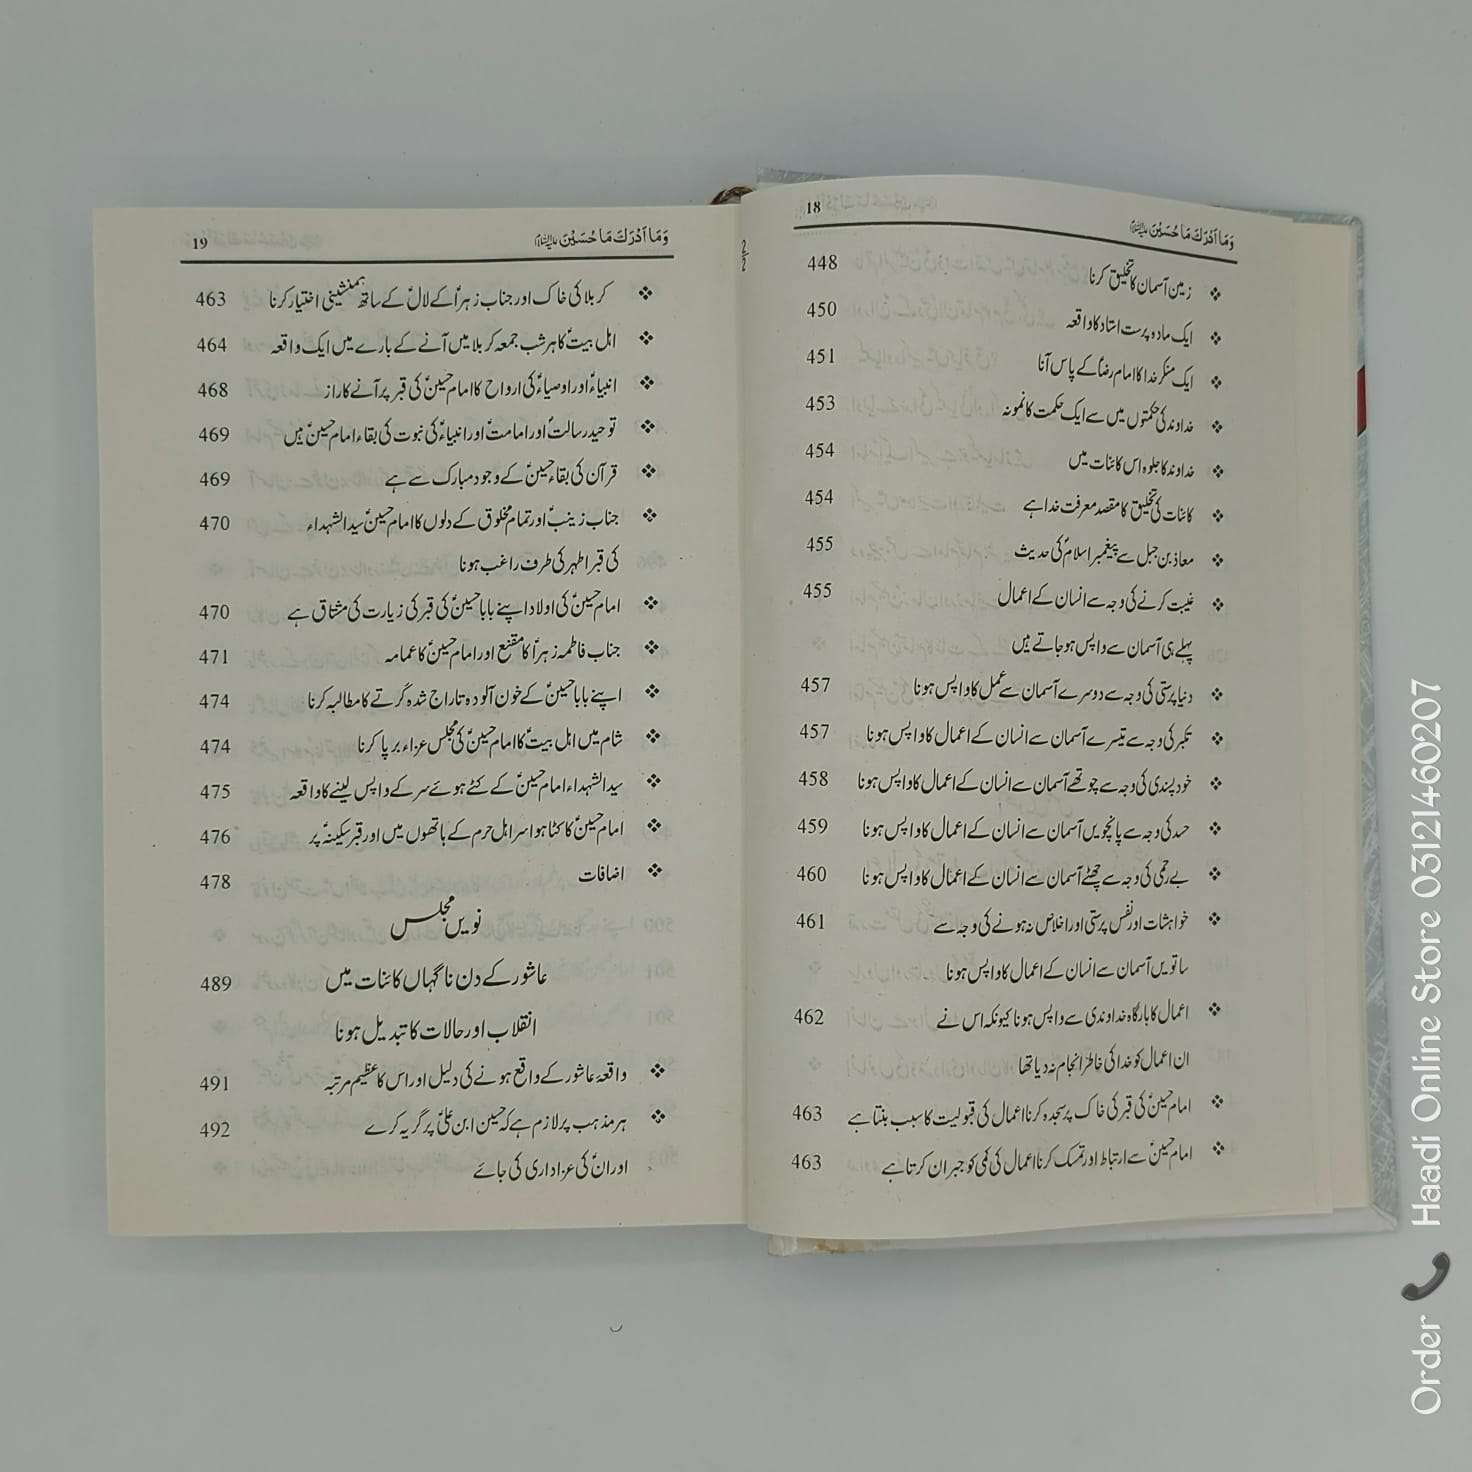 18
وَمَا اَدْرٰکَ مَا حُسَیْنؑ علیہ السلام
❖ زمین آسمان کا تخلیق کرنا 448
❖ ایک مادہ پرست استاد کا واقعہ 450
❖ ایک منکر خدا کا امام رضاؑ کے پاس آنا 451
❖ خداوند کی حکمتوں میں سے ایک حکمت کا نمونہ 453
❖ خداوند کا جلوہ اس کائنات میں 454
❖ کائنات کی تخلیق کا مقصد معرفت خدا ہے 454
❖ معاذ بن جبل سے پیغمبر اسلامؐ کی حدیث 455
❖ غیبت کرنے کی وجہ سے انسان کے اعمال 455
پہلے ہی آسمان سے واپس ہو جاتے ہیں
❖ دنیا پرستی کی وجہ سے دوسرے آسمان سے عمل کا واپس ہونا 457
❖ تکبر کی وجہ سے تیسرے آسمان سے انسان کے اعمال کا واپس ہونا 457
❖ خود پسندی کی وجہ سے چوتھے آسمان سے انسان کے اعمال کا واپس ہونا 458
❖ حسد کی وجہ سے پانچویں آسمان سے انسان کے اعمال کا واپس ہونا 459
❖ بے رحمی کی وجہ سے چھٹے آسمان سے انسان کے اعمال کا واپس ہونا 460
❖ خواہشات اور نفس پرستی اور اخلاص نہ ہونے کی وجہ سے 461
ساتویں آسمان سے انسان کے اعمال کا واپس ہونا
❖ اعمال کا بارگاہ خداوندی سے واپس ہونا کیونکہ اس نے 462
ان اعمال کو خدا کی خاطر انجام نہ دیا تھا
❖ امام حسینؑ کی قبر کی خاک پر سجدہ کرنا اعمال کی قبولیت کا سبب بنتا ہے 463
❖ امام حسینؑ سے ارتباط اور تمسک کرنا اعمال کی کمی کو جبران کرتا ہے 463
19
وَمَا اَدْرٰکَ مَا حُسَیْنؑ علیہ السلام
❖ کربلا کی خاک اور جناب زہراؑ کے لالؑ کے ساتھ ہمنشینی اختیار کرنا 463
❖ اہل بیتؑ کا ہر شب جمعہ کربلا میں آنے کے بارے میں ایک واقعہ 464
❖ انبیاءؑ اور اوصیاءؑ کی ارواح کا امام حسینؑ کی قبر پر آنے کا راز 468
❖ توحید رسالتؐ اور امامتؑ اور انبیاءؑ کی نبوت کی بقاء امام حسینؑ ہیں 469
❖ قرآن کی بقاء حسینؑ کے وجود مبارک سے ہے 469
❖ جناب زینبؑ اور تمام مخلوق کے دلوں کا امام حسینؑ سید الشہداء 470
کی قبر اطہر کی طرف راغب ہونا
❖ امام حسینؑ کی اولاد اپنے بابا حسینؑ کی قبر کی زیارت کی مشتاق ہے 470
❖ جناب فاطمہ زہراؑ کا مقنع اور امام حسینؑ کا عمامہ 471
❖ اپنے بابا حسینؑ کے خون آلودہ تاراج شدہ کُرتے کا مطالبہ کرنا 474
❖ شام میں اہل بیتؑ کا امام حسینؑ کی مجلس عزاء برپا کرنا 474
❖ سید الشہداء امام حسینؑ کے کٹے ہوئے سر کے واپس لینے کا واقعہ 475
❖ امام حسینؑ کا کٹا ہوا سر اہل حرم کے ہاتھوں میں اور قبر سکینہؑ پر 476
❖ اضافات 478
نویں مجلس
عاشور کے دن ناگہاں کائنات میں 489
انقلاب اور حالات کا تبدیل ہونا
❖ واقعۂ عاشور کے واقع ہونے کی دلیل اور اس کا عظیم مرتبہ 491
❖ ہر مذہب پر لازم ہے کہ حسین ابن علیؑ پر گریہ کرے 492
اور انؑ کی عزاداری کی جائے
2/2
Order 📞 Haadi Online Store 03121460207